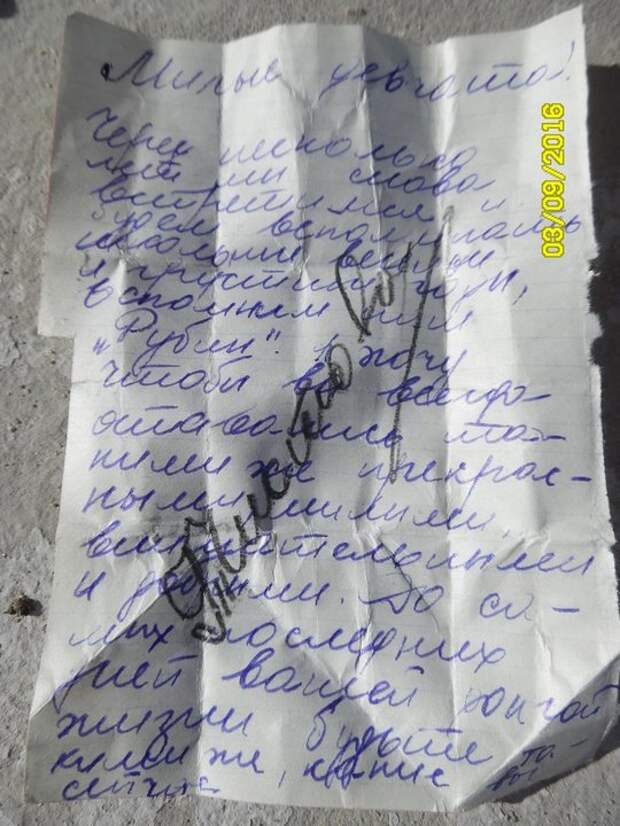 Милые девчата!
Через несколько
лет мы снова
встретимся и
будем вспоминать
школьные веселые
и грустные годы,
вспомним наш
"Рубин". Я хочу
чтобы вы всегда
оставались та-
кими же прекрас-
ными, милыми,
внимательными
и добрыми. До са-
мых последних
дней вашей долгой
жизни будьте та-
кими же, какие вы
сейчас
Письмо
03/09/2016